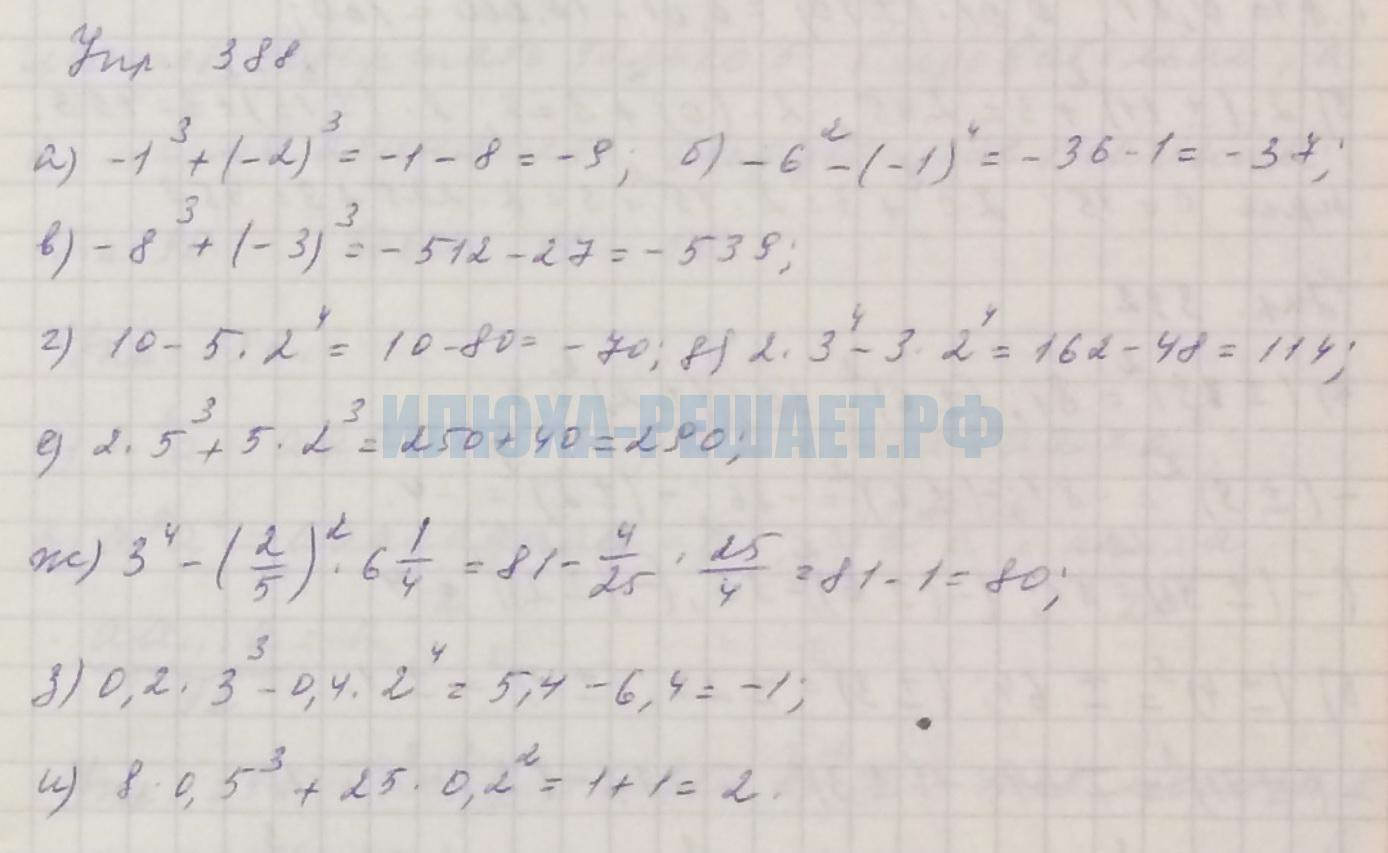 Упр. 388.
а) -1³ + (-2)³ = -1 - 8 = -9; б) -6² - (-1)⁴ = -36 - 1 = -37;
в) -8³ + (-3)³ = -512 - 27 = -539;
г) 10 - 5 · 2⁴ = 10 - 80 = -70; д) 2 · 3⁴ - 3 · 2⁴ = 162 - 48 = 114;
ИЛЮХА-РЕШАЕТ.РФ
е) 2 · 5³ + 5 · 2³ = 250 + 40 = 290;
ж) 3⁴ - (2/5)² · 6 1/4 = 81 - 4/25 · 25/4 = 81 - 1 = 80;
з) 0,2 · 3³ - 0,4 · 2⁴ = 5,4 - 6,4 = -1;
и) 8 · 0,5³ + 25 · 0,2² = 1 + 1 = 2.